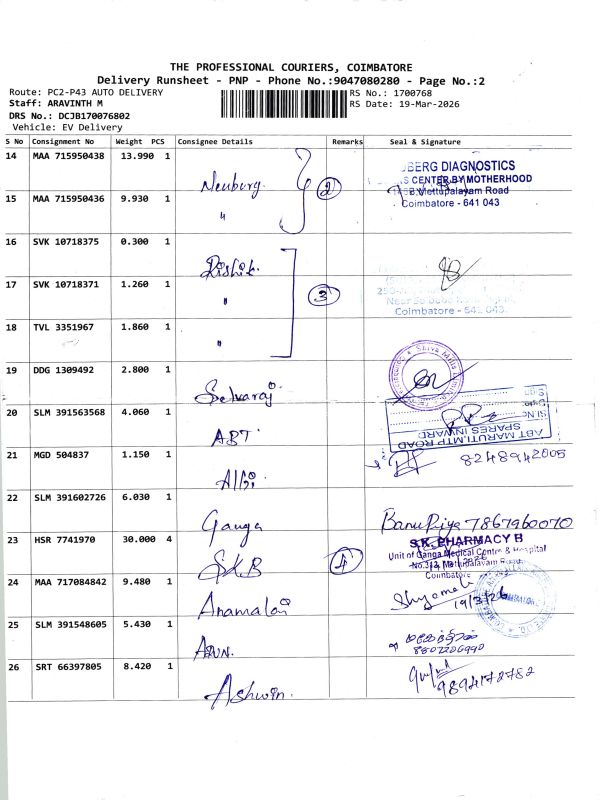 THE PROFESSIONAL COURIERS, COIMBATORE
Delivery Runsheet - PNP - Phone No.:9047080280 - Page No.:2
Route: PC2-P43 AUTO DELIVERY
RS No.: 1700768
Staff: ARAVINTH M
RS Date: 19-Mar-2026
DRS No.: DCJB170076802
Vehicle: EV Delivery
S No Consignment No Weight PCS Consignee Details Remarks Seal & Signature
14 MAA 715950438 13.990 1
Neuburg. 2
BERG DIAGNOSTICS
CENTER BY MOTHERHOOD
Mettupalayam Road
Coimbatore - 641 043
15 MAA 715950436 9.930 1
"
16 SVK 10718375 0.300 1
Rishik.
17 SVK 10718371 1.260 1
" 3
Coimbatore - 641 043.
18 TVL 3351967 1.860 1
"
19 DDG 1309492 2.800 1
Selvaraj.
20 SLM 391563568 4.060 1
ABT.
ABT MARUTI, MTP ROAD
SPARES INWARD
Sl.No
Sign
21 MGD 504837 1.150 1
8248942005
22 SLM 391602726 6.030 1
Ganga
Banu Priya 7867960070
23 HSR 7741970 30.000 4
S.K.B 4
S.K. PHARMACY B
Unit of Ganga Medical Centre & Hospital
No.313, Mettupalayam Road,
Coimbatore
24 MAA 717084842 9.480 1
Anamalai
Shyamala
19/3/26
25 SLM 391548605 5.430 1
Arun.
26 SRT 66397805 8.420 1
Ashwin.
9894178782